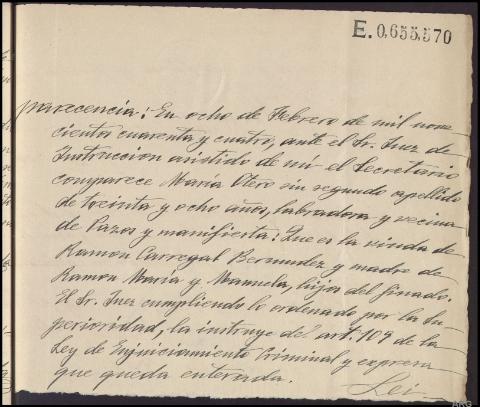 E.0,655,570
parecencia: En ocho de Febrero de mil nove-
cientos cuarenta y cuatro, ante el Sr. Juez de
Instruccion asistido de mí el Secretario
comparece María Otero sin segundo apellido
de treinta y ocho años, labradora y vecina
de Pazos y manifiesta: Que es la viuda de
Ramon Carregal Bermudez y madre de
Ramon María y Manuela, hijos del finado.
El Sr. Juez cumpliendo lo ordenado por la Su-
perioridad, la instruye del art. 109 de la
Ley de Enjuiciamiento Criminal y expresa
que queda enterada. Lei-
ARG